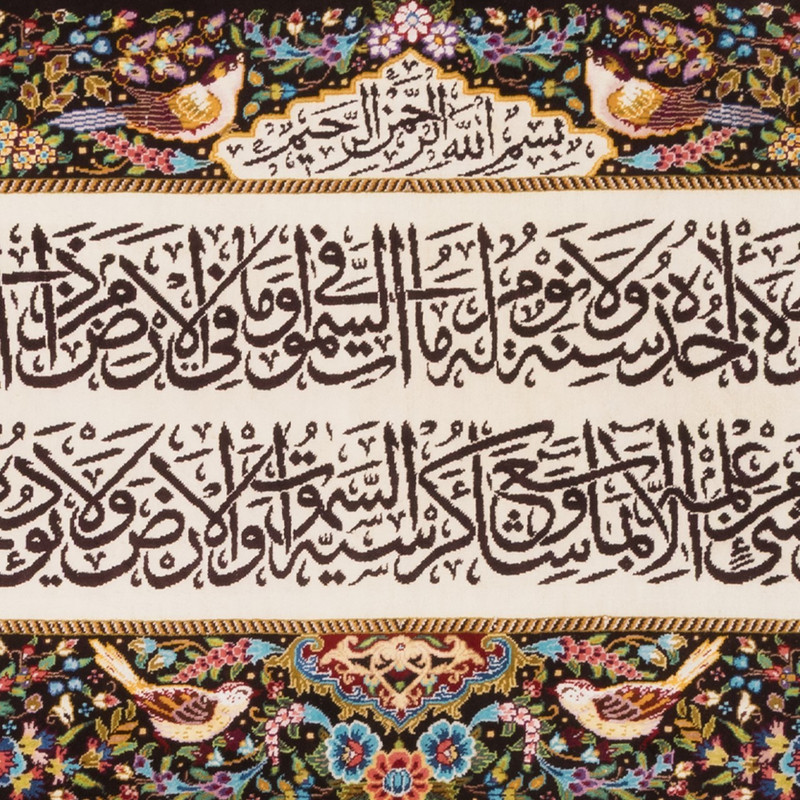 بسم الله الرحمن الرحيم
لا تأخذه سنة ولا نوم له ما في السموات وما في الارض من ذا
شئ من علمه الا بما شاء وسع كرسيه السموات والارض ولا يؤده